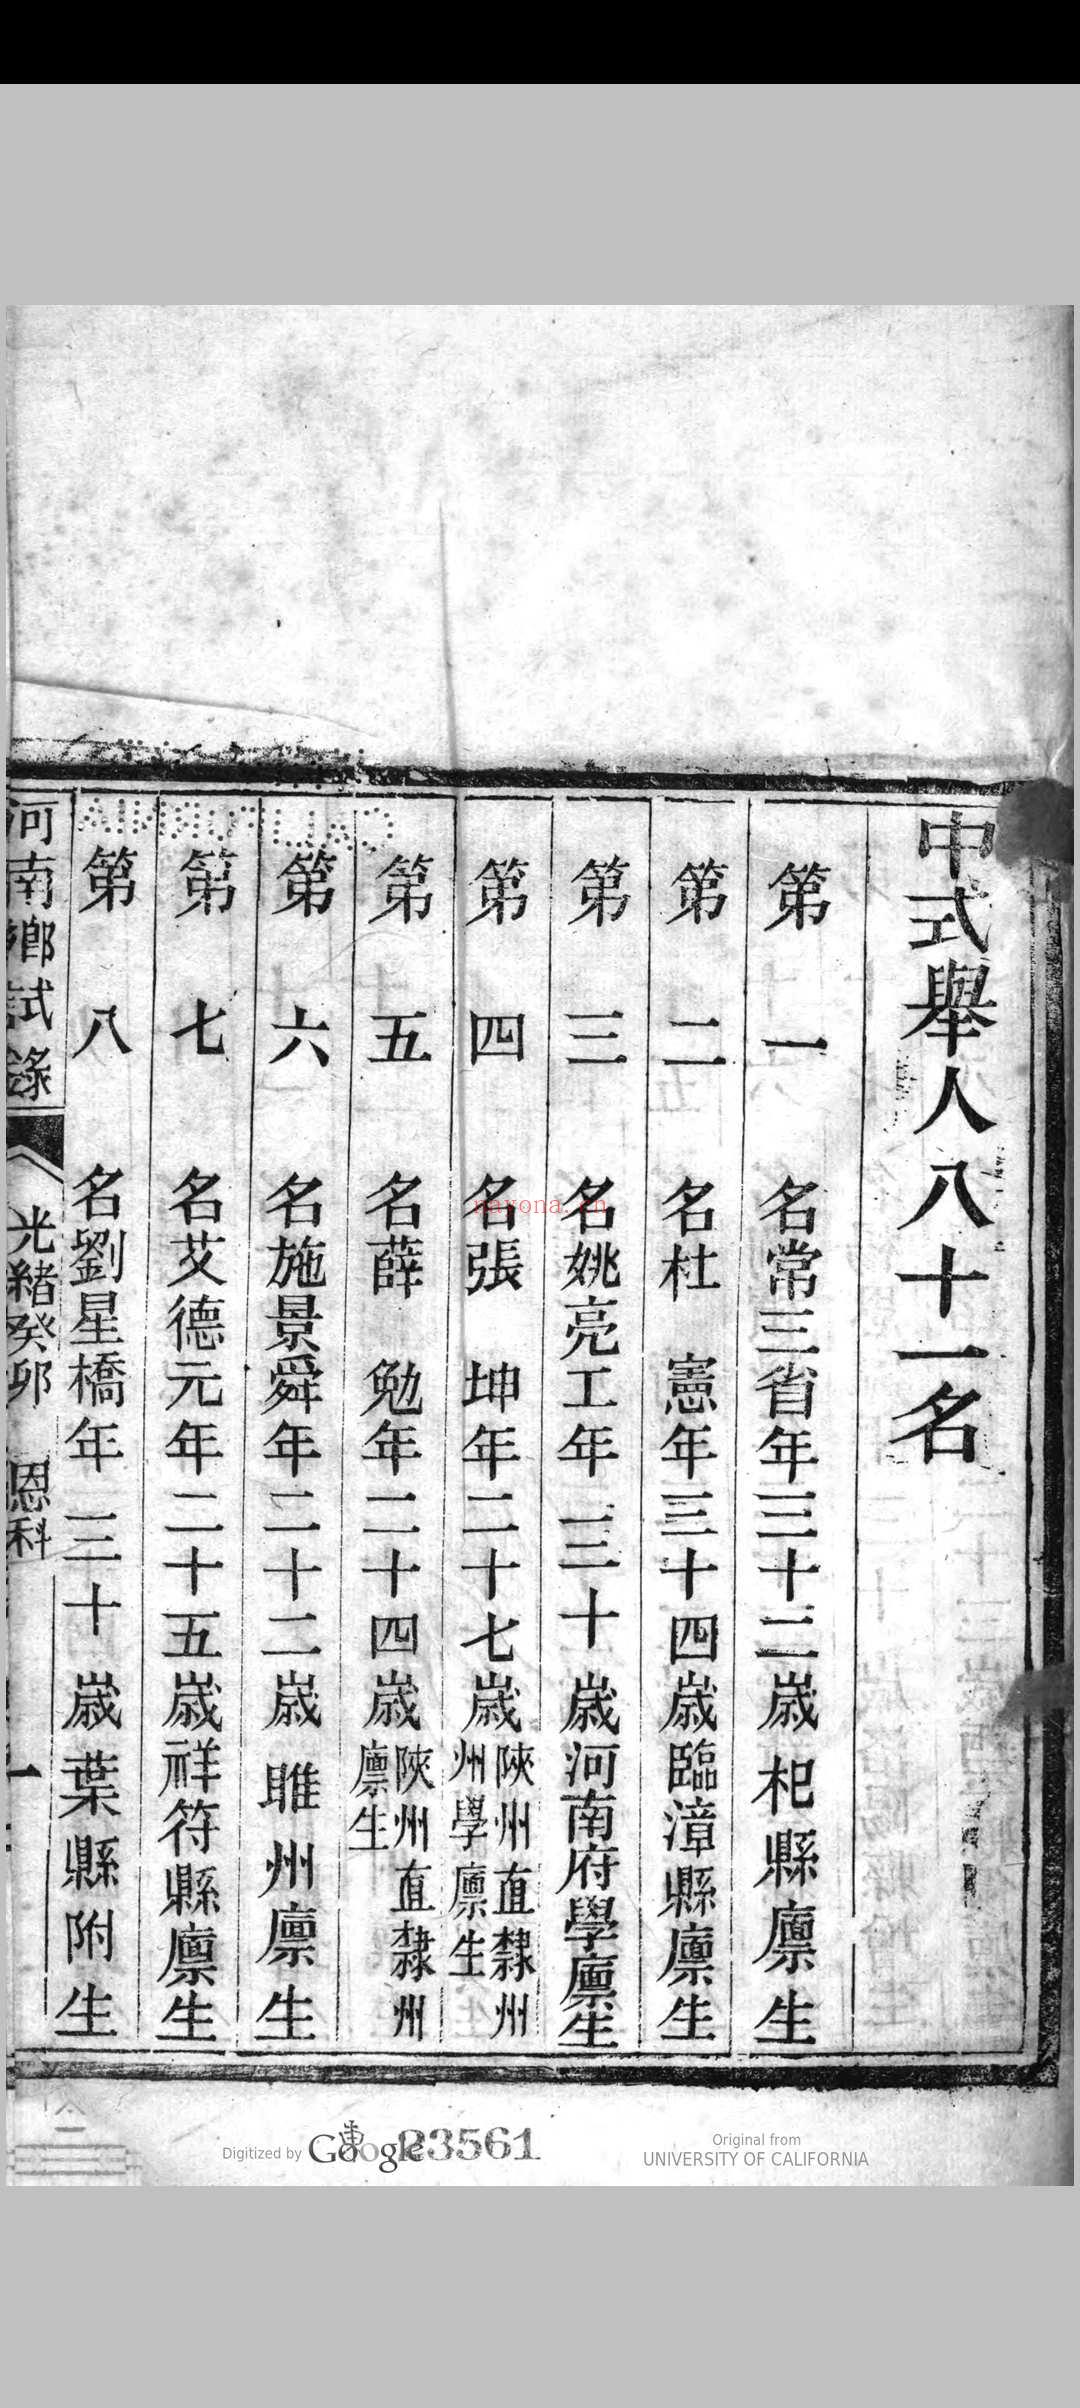 中式舉人八十一名
第一名常三省年三十二歲杞縣廩生
第二名杜憲年三十四歲臨漳縣廩生
第三名姚亮工年三十歲河南府學廩生
第四名張坤年二十七歲陝州直隸州州學廩生
第五名薛勉年二十四歲陝州直隸州廩生
第六名施景舜年二十二歲睢州廩生
第七名艾德元年二十五歲祥符縣廩生
第八名劉星橋年三十歲葉縣附生
河南鄉試錄 光緒癸卯 恩科 一
nayona.cn
Digitized by Google
23561
Original from
UNIVERSITY OF CALIFORNIA